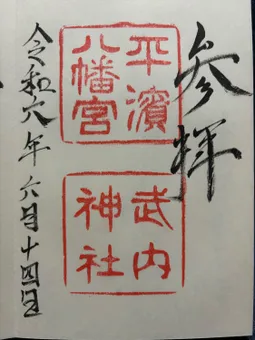 参拝
平濱
八幡宮
武内
神社
令和六年六月十四日